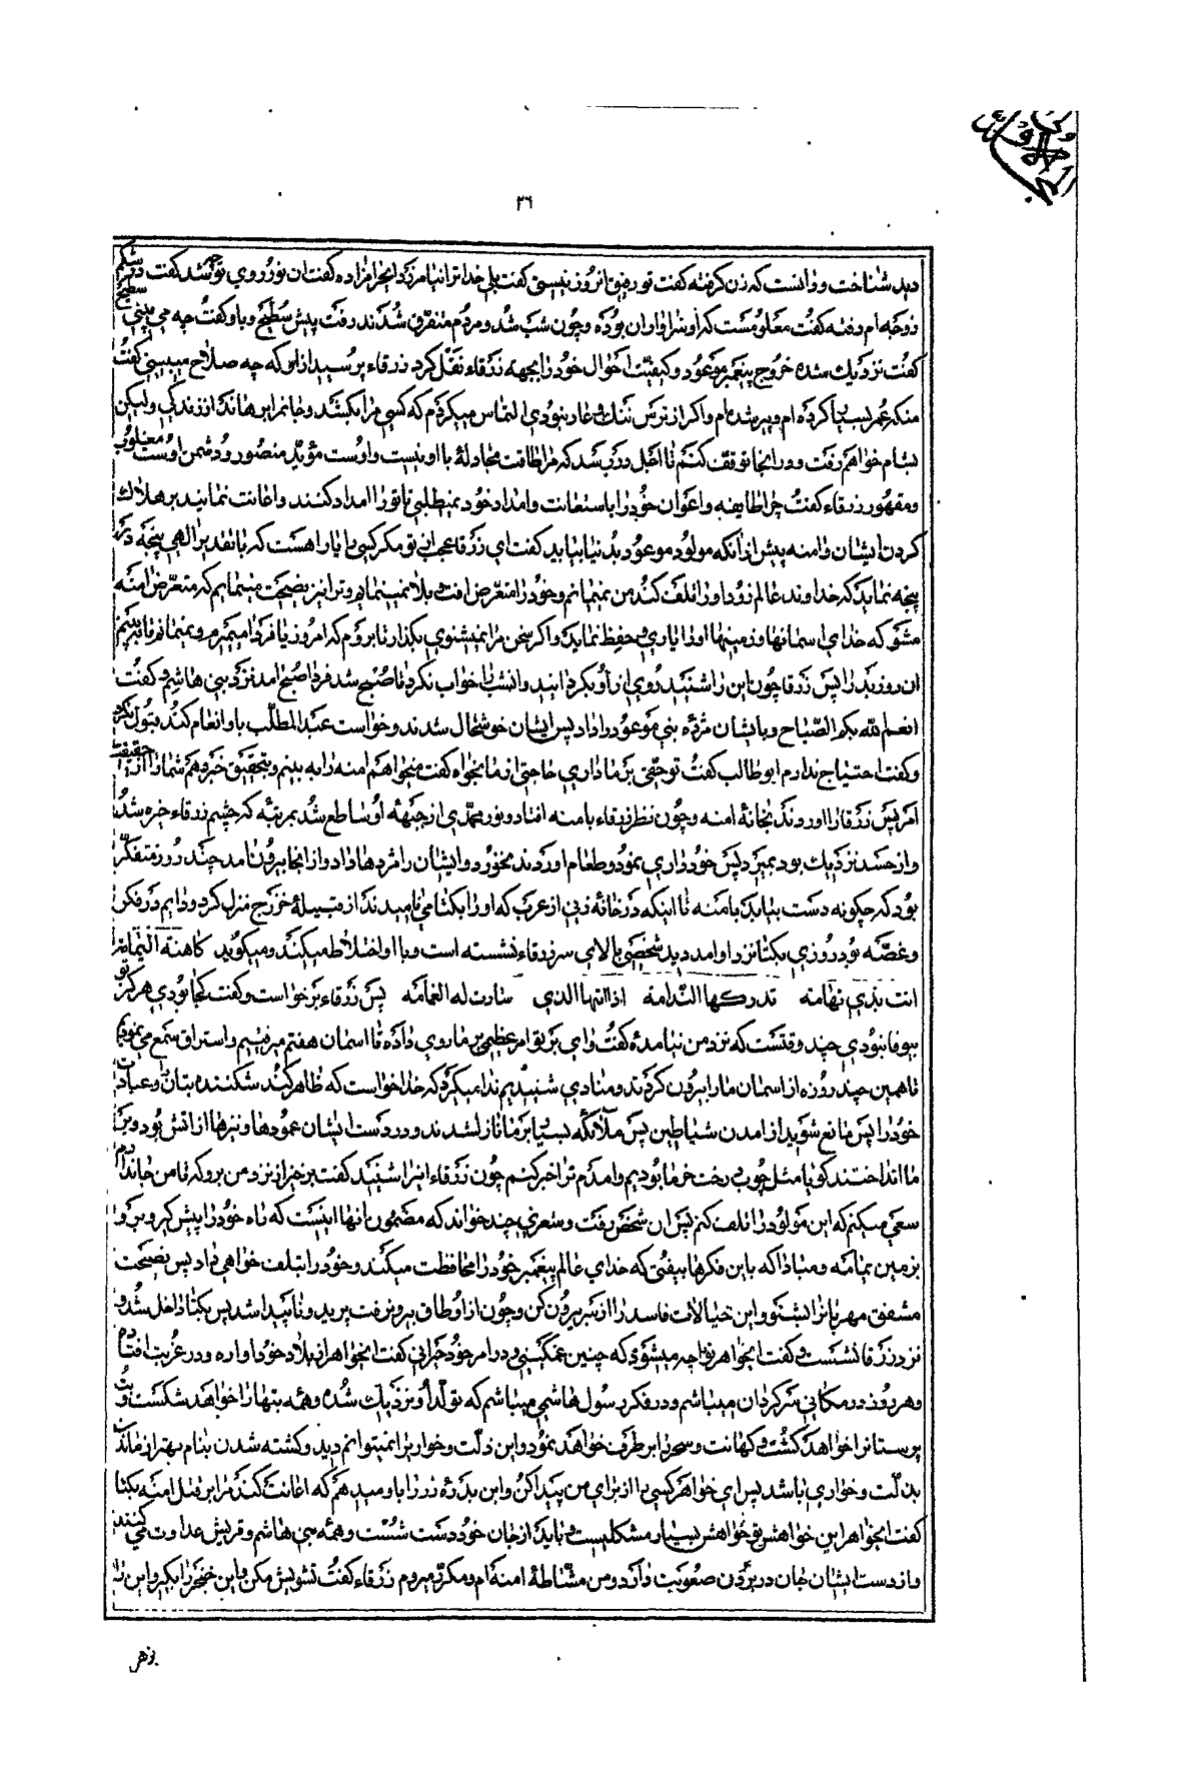 المجلد الاول
۲۶
دید شناخت و دانست که زن گرفته گفت تو رفیق انروز نیستی گفت بلی خدا ترا نیامرزد ایحرامزاده گفت ان نور روی تو چه شد گفت در شکم
زوجه ام رفته گفت معلومست که او سزاوار ان بوده و چون شب شد و مردم متفرق شدند رفت پیش سطیح و باو گفت چه می بینی سطیح
گفت نزدیك شده خروج پیغمبر موعود و کیفیت احوال خود را بجهه زرقاء نقل کرد زرقاء پرسید از او که چه صلاح میبینی گفت
منکه عمر بسیار کرده ام و پیر شده ام و اگر از ترس ننك و عار نبودی التماس میکردم که کسی مرا بکشد و جانم را برهاند از زندگی ولیکن
بشام خواهم رفت و در انجا توقف کنم تا اجل در رسد که مرا طاقت مجادلهٔ با او نیست و اوست مؤید منصور و دشمن اوست مغلوب
و مقهور زرقاء گفت چرا طایفه و اعوان خود را باستعانت و امداد خود نمیطلبی تا تو را امداد کنند و اعانت نمایند بر هلاك
کردن ایشان و امنه پیش از انکه مولود موعود بدنیا بیاید گفت ای زرقا عجب از تو مگر کسی را یارا هست که با تقدیر الهی پنجه در
پنجه نماید که خداوند عالم زود او را تلف کند من نمیتوانم و خود را متعرض افت و بلا نمینمایم و ترا نیز نصیحت مینمایم که متعرض امنه
مشو که خدای اسمانها و زمینها او را یاری و حفظ نماید و اگر سخن مرا نمیشنوی بگذار تا بروم که امروز یا فردا میمیرم و نمیمانم تا به بینم
ان روز بد را پس زرقا چون این را شنید روی از او بگردانید و انشب را خواب نکرد تا صبح شد فردا صبح امد نزد بنی هاشم و گفت
انعم الله بکم الصباح و بایشان مژده نبی موعود را داد پس ایشان خوشحال شدند و خواست عبد المطلب باو انعام کند قبول نکرد
و گفت احتیاج ندارم ابو طالب گفت تو حقی بر ما داری حاجتی از ما بخواه گفت میخواهم امنه را به بینم و بتحقیق خبر دهم شما را از حقیقت
امر پس زرقا را اوردند بخانهٔ امنه و چون نظر زرقاء بامنه افتاد و نور محمدی از جبههٔ او ساطع شد بمرتبهٔ که چشم زرقاء خیره شد
و از حسد نزدیك بود بمیرد پس خودداری نمود و طعام اوردند نخورد و ایشان را مژدها داد و از انجا بیرون امد چند روز متفکر
بود که چگونه دست بیابد بامنه تا اینکه در خانهٔ زنی از عرب که او را بکتا می نامیدند از قبیلهٔ خزرج منزل کرد و دایم در فکر
و غصه بود روزی بکتا نزد او امد دید شخصی بالای سر زرقاء نشسته است و با او اختلاط میکند و میگوید کاهنة الیمامة
انت بذی تهامة تدرکها الندامة اذا اتیها الذی سارت له الغمامة پس زرقاء برخواست و گفت کجا بودی هرگز تو
بیوفا نبودی چند وقتست که نزد من نیامدهٔ گفت وای بر تو امر عظیمی بر ما روی داده تا اسمان هفتم میرفتیم و استراق سمع می نمودیم
تا همین چند روزه از اسمان ما را بیرون کردند و منادی شنیدیم ندا میکرد که خدا خواست که ظاهر کند شکننده بتان و عبادت
خود را پس مانع شوید از امدن شیاطین پس ملائکه بسیار بر ما نازل شدند و در دست ایشان عمودها و نیزها از اتش بود و بر
ما انداختند گویا مثل چوب درخت خرما بودیم و امدم ترا خبر کنم چون زرقاء اینرا شنید گفت برخیز از نزد من برو که تا من جان دارم
سعی میکنم که این مولود را تلف کنم پس ان شخص رفت و شعری چند خواند که مضمون انها اینست که راه خود را پیش گیر و برو
بزمین یمامه و مبادا که باین فکرها بیفتی که خدای عالم پیغمبر خود را محافظت میکند و خود را بتلف خواهی داد پس نصیحت
مشفق مهربانرا بشنو و این خیالات فاسد را از سر بیرون کن و چون از اوطاق بیرون رفت پرید و ناپیدا شد پس بکتا داخل شد و
نزد زرقا نشست و گفت ایخواهر تو را چه میشود که چنین غمگینی و در امر خود حیرانی گفت ایخواهر از بلاد خود اواره و در غربت افتاده
و هر روز در مکانی سرگردان میباشم و در فکر رسول هاشمی میباشم که تولد او نزدیك شده و همه بتها را خواهد شکست و بت
پرستان را خواهد کشت و کهانت و سحر را برطرف خواهد نمود و این ذلت و خواری را نمیتوانم دید و کشته شدن بنام بهتر از ماندن
بذلت و خواری باشد پس ای خواهر کسی را از برای من پیدا کن و این بدره زر را باو میدهم که اعانت کند مرا بر قتل امنه بکتا
گفت ایخواهر این خواهش تو خواهش بسیار مشکلیست و باید از جان خود دست شست و همه بنی هاشم و قریش عداوت می کنند
و از دست ایشان جان در بردن صعوبت دارد و من مشاطهٔ امنه ام و مکرر میروم زرقاء گفت تشویش مکن و این خنجر را بگیر و این را
بزهر